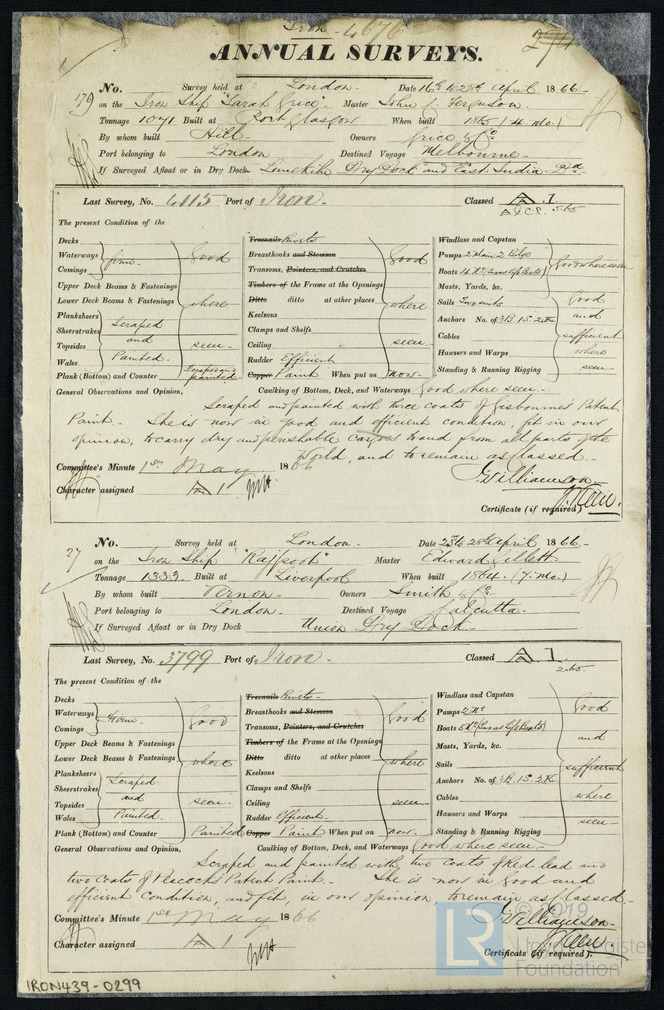 Iron 4676
ANNUAL SURVEYS.
No. Survey held at London. Date 16th to 28th April 1866.
179 on the Iron Ship "Sarah Grice" Master John C. Ferguson.
Tonnage 1071 Built at Port Glasgow When built 1865 (4 mo.)
By whom built Hill Owners Grice & Co.
Port belonging to London Destined Voyage Melbourne.
If Surveyed Afloat or in Dry Dock Limekiln Dry Dock and East India
Last Survey, No. 4115 Port of Iron. Classed A 1.
A & C.P. 5.65
The present Condition of the
Decks
Waterways
Comings
Upper Deck Beams & Fastenings
Lower Deck Beams & Fastenings
Planksheers
Sheerstrakes
Topsides
Wales
Plank (Bottom) and Counter
Scraped
and
Painted.
Good
where
seen.
Treenails Rivets
Breasthooks and Stemson
Transoms, Pointers, and Crutches
Timbers of the Frame at the Openings
Ditto ditto at other places
Keelsons
Clamps and Shelfs
Ceiling
Rudder Efficient
Copper Paint When put on now.
Good
where
seen.
Windlass and Capstan
Pumps 2 Main 2 Bilge
Boats
Masts, Yards, &c.
Sails Two suits
Anchors No. of 3B. 1S. 2K.
Cables
Hausers and Warps
Standing & Running Rigging
Good where seen
Good
and
sufficient
where
seen
General Observations and Opinion, Caulking of Bottom, Deck, and Waterways Good where seen.
Scraped and painted with three coats of Gisbournes Patent
Paint. She is now in good and efficient condition, fit in our
opinion, to carry dry and perishable cargoes to and from all parts of the
World, and to remain as classed.
Committee's Minute 1st May 1866
J. Williamson
Character assigned A 1
Certificate (if required)
No. Survey held at London. Date 23rd to 28th April 1866.
27 on the Iron Ship "Rajpoot" Master Edward Gillett
Tonnage 1333 Built at Liverpool When built 1864. (7. mo.)
By whom built Vernon. Owners Smith & Co.
Port belonging to London Destined Voyage Calcutta.
If Surveyed Afloat or in Dry Dock Union Dry Dock.
Last Survey, No. 3799 Port of Iron. Classed A 1.
2.65
The present Condition of the
Decks
Waterways
Comings
Upper Deck Beams & Fastenings
Lower Deck Beams & Fastenings
Planksheers
Sheerstrakes
Topsides
Wales
Plank (Bottom) and Counter Painted
Scraped
and
Painted.
Good
where
seen.
Treenails Rivets
Breasthooks and Stemson
Transoms, Pointers, and Crutches
Timbers of the Frame at the Openings
Ditto ditto at other places
Keelsons
Clamps and Shelfs
Ceiling
Rudder Efficient.
Copper Paint When put on now.
Good
where
seen.
Windlass and Capstan
Pumps 2 No
Boats
Masts, Yards, &c.
Sails
Anchors No. of 3B. 1S. 2K
Cables
Hausers and Warps
Standing & Running Rigging
Good
and
sufficient
where
seen.
General Observations and Opinion, Caulking of Bottom, Deck, and Waterways Good where seen.
Scraped and painted with two coats of Red lead and
two coats of Peacocks Patent Paint. She is now in Good and
efficient condition, and fit, in our opinion to remain as classed.
Committee's Minute 1st May 1866
J. Williamson
Character assigned A 1
Certificate (if required).
LR © 2019
Lloyd's Register
Foundation
IRON439-0299